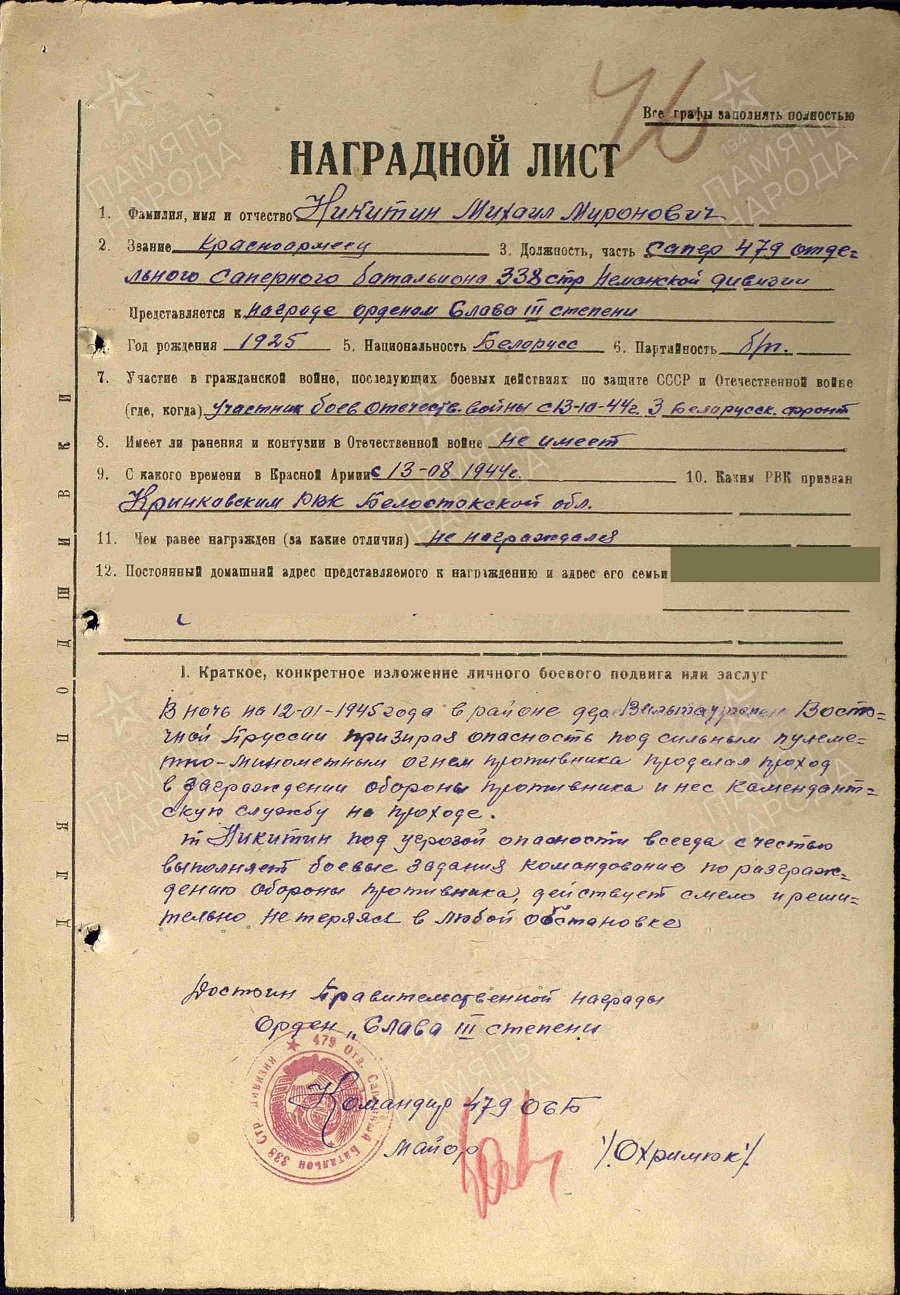 76
Все графы заполнять полностью
НАГРАДНОЙ ЛИСТ
1. Фамилия, имя и отчество Никитин Михаил Миронович
2. Звание Красноармеец 3. Должность, часть Сапер 479 отде-
льного Саперного батальиона 338 стр Неманской дивизии
Представляется к награде орденом Слава III степени
Год рождения 1925 5. Национальность Белорусс 6. Партийность б/п.
7. Участие в гражданской войне, последующих боевых действиях по защите СССР и Отечественной войне
(где, когда) участник боев отечеств. войны с 13-10-44г. 3 Белорусск. фронт
8. Имеет ли ранения и контузии в Отечественной войне не имеет
9. С какого времени в Красной Армии с 13-08 1944г. 10. Каким РВК призван
Кринковским РВК Белостокской обл.
11. Чем ранее награжден (за какие отличия) не награждался
12. Постоянный домашний адрес представляемого к награждению и адрес его семьи
1. Краткое, конкретное изложение личного боевого подвига или заслуг
В ночь на 12-01-1945 года в районе дер. Восто-
чной Пруссии призирая опасность под сильным пулеме-
тно-минометным огнем противника проделал проход
в заграждении обороны противника и нес камендант-
скую службу на проходе.
т Никитин под угрозой опасности всегда с честью
выполняет боевые задания командование по разграж-
дению обороны противника, действует смело и реши-
тельно не теряяся в любой обстановке
Достоин Правительственной награды
Орден „Слава III степени
Командир 479 ОСБ
майор /Охримюк/.
479 Отд. Саперный Батальон 338 Стр дивизии
ДЛЯ ПОДШИВКИ
ПАМЯТЬ НАРОДА